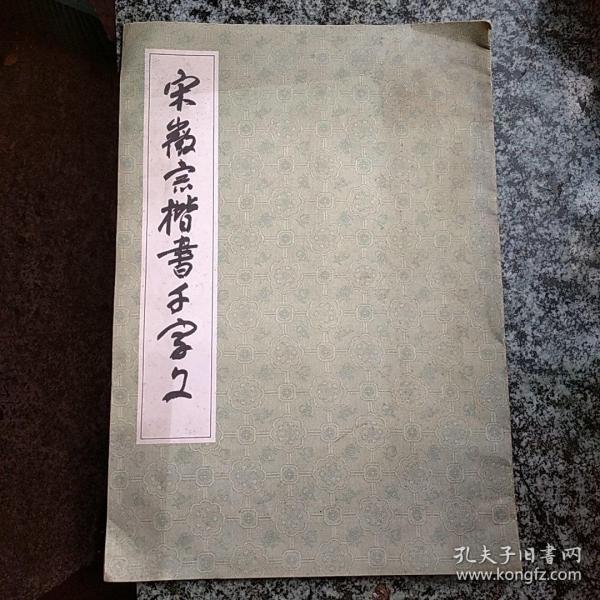 宋徽宗楷书千字文
孔夫子旧书网
www.kongfz.com